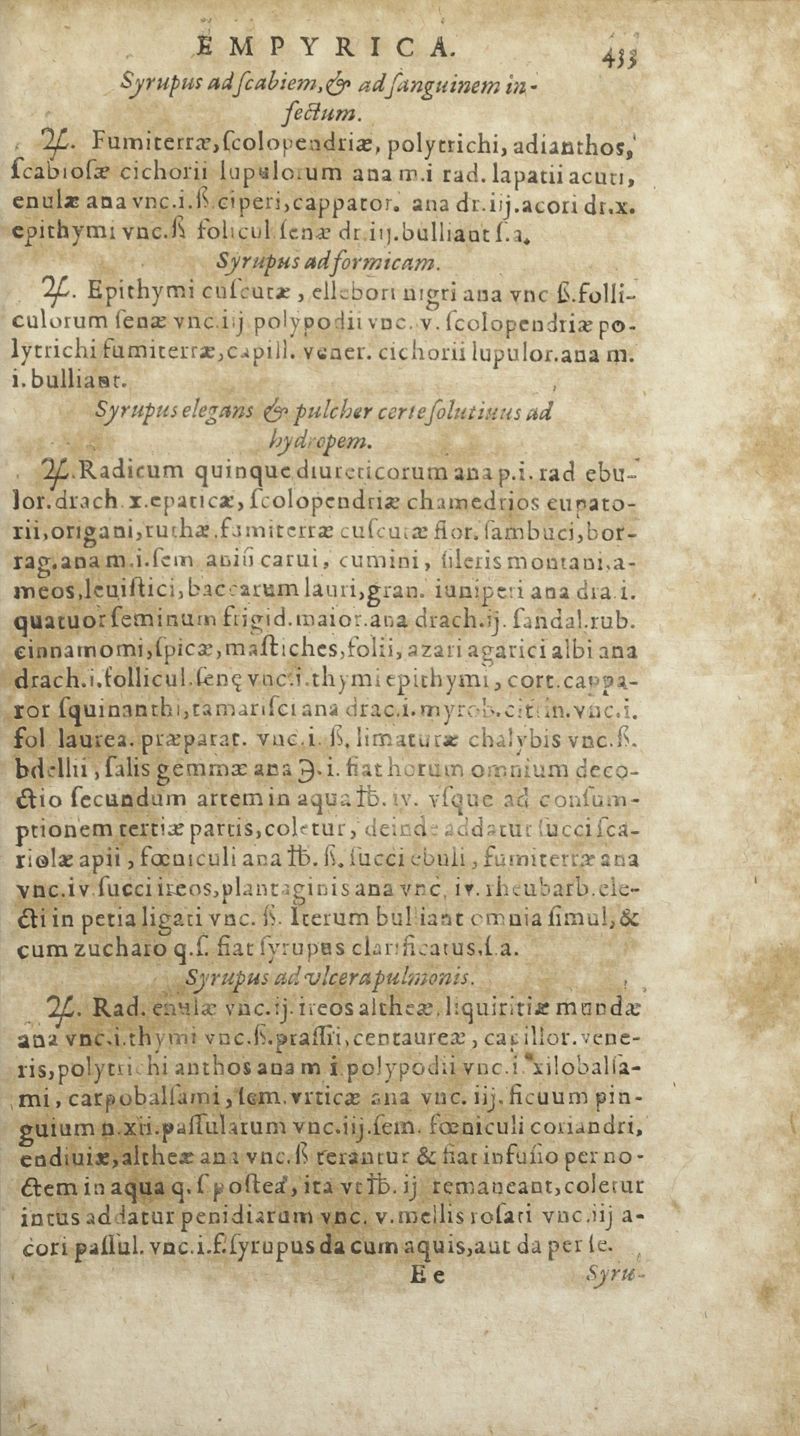 EMPYRICA. 433
Syrupus ad ſcabiem, & ad ſanguinem in-
fectum.
℞. Fumiterræ, ſcolopendriæ, polytrichi, adianthos,
ſcabioſæ cichorii lupulorum ana m.i rad. lapatii acuti,
enulæ ana vnc.i.ß ciperi, cappator. ana dr.iij. acori dr.x.
epithymi vnc.ß folicul ſenæ dr.iij. bulliant ſ.a.
Syrupus ad formicam.
℞. Epithymi cuſcutæ, ellebori nigri ana vnc ß. folli-
culorum ſenæ vnc.iij polypodii vnc. v. ſcolopendriæ po-
lytrichi fumiterræ, capill. vener. cichorii lupulor. ana m.
i. bulliant.
Syrupus elegans & pulcher certe ſolutiuus ad
hydropem.
℞. Radicum quinque diureticorum ana p.i. rad ebu-
lor. drach. x. epaticæ, ſcolopendriæ chamedrios eupato-
rii, origani, ruthæ. fumiterræ cuſcutæ flor. ſambuci, bor-
rag. ana m.i. ſem aniſi carui, cumini, ſileris montani, a-
meos, leuiſtici, baccarum lauri, gran. iuniperi ana dra.i.
quatuor ſeminum frigid. maior. ana drach.ij. ſandal. rub.
cinnamomi, ſpicæ, maſtiches, folii, azari agarici albi ana
drach.i. follicul. ſenę vnc.i. thymi epithymi, cort. cappa-
ror ſquinanthi, tamariſci ana drac.i. myrob. citrin. vnc.i.
fol laurea. præparat. vnc.i. ß. limaturæ chalybis vnc.ß.
bdellii, ſalis gemmæ ana ℈.i. fiat horum omnium deco-
ctio ſecundum artem in aqua ℔. iv. vſque ad conſum-
ptionem tertiæ partis, coletur, deinde addatur ſucci ſca-
riolæ apii, fœniculi ana ℔. ß. ſucci ebuli, fumiterræ ana
vnc.iv ſucci ireos, plantaginis ana vnc. iv. rheubarb. ele-
cti in petia ligati vnc. ß. Iterum bulliant omnia ſimul, &
cum zucharo q.ſ. fiat ſyrupus clarificatus. ſ.a.
Syrupus ad vlcera pulmonis.
℞. Rad. enulæ vnc.ij. ireos altheæ, liquiritiæ mundæ
ana vnc.i. thymi vnc.ß. praſſii, centaureæ, capillor. vene-
ris, polytrichi anthos ana m i polypodii vnc.i. xilobalſa-
mi, carpobalſami, ſem. vrticæ ana vnc. iij. ficuum pin-
guium n.xii. paſſularum vnc.iij. ſem. fœniculi coriandri,
endiuiæ, altheæ ana vnc.ß terantur & fiat infuſio per no-
ctem in aqua q.ſ poſtea, ita vt ℔. ij remaneant, coletur
intus addatur penidiarum vnc. v. mellis roſati vnc.iij a-
cori paſſul. vnc.i.ſ. ſyrupus da cum aquis, aut da per ſe.
E e Syru-